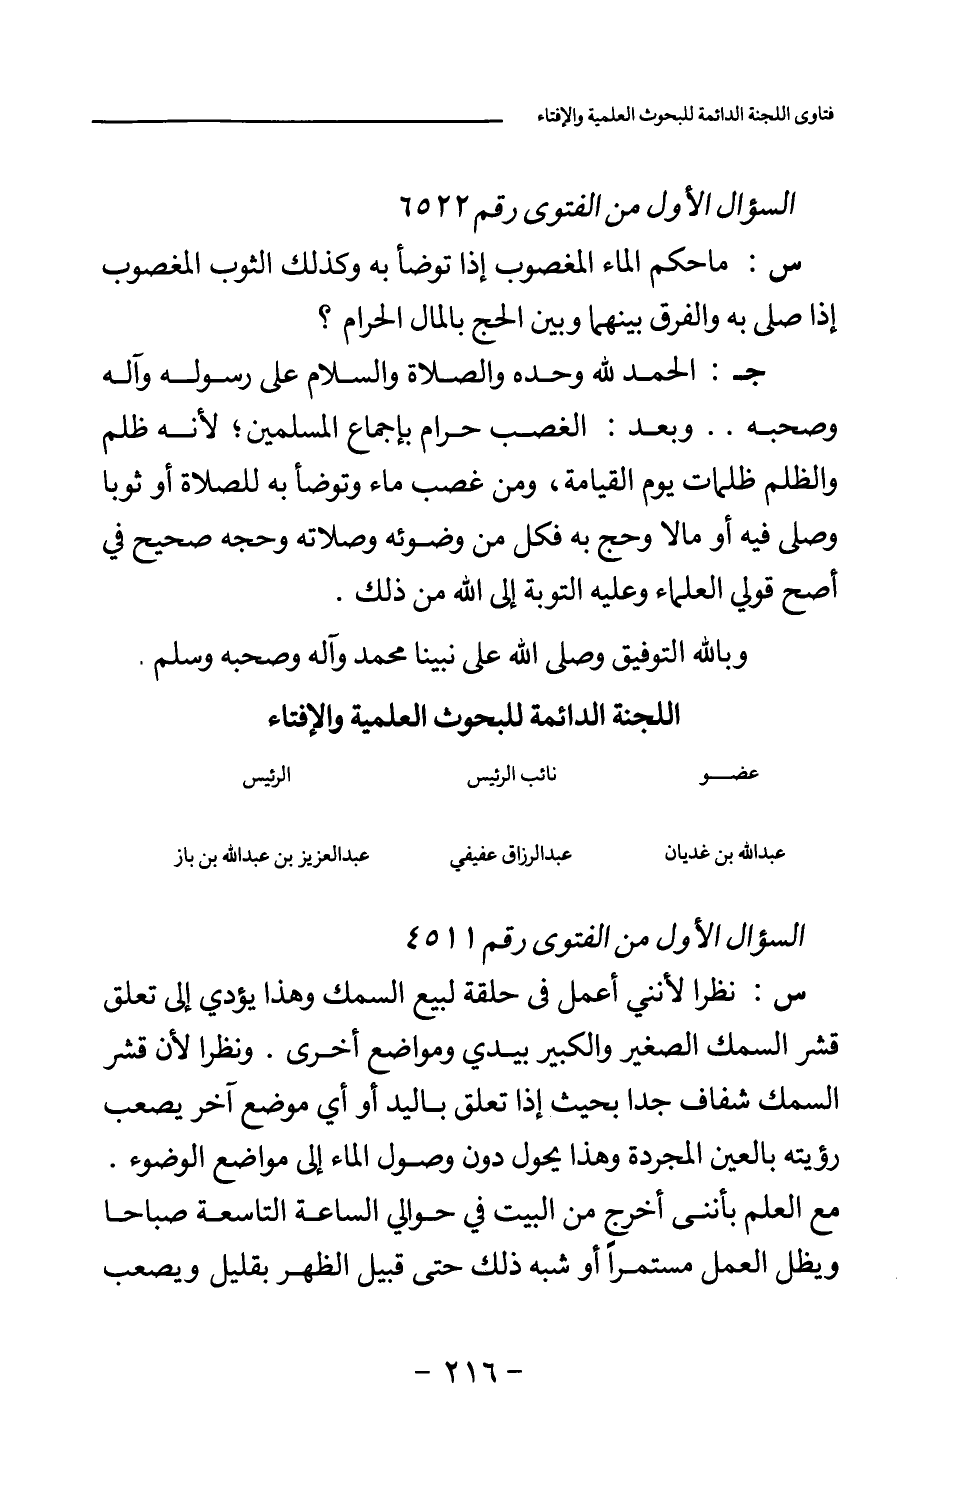 فتاوى اللجنة الدائمة للبحوث العلمية والإفتاء
السؤال الأول من الفتوى رقم ٦٥٢٢
س : ماحكم الماء المغصوب إذا توضأ به وكذلك الثوب المغصوب
إذا صلى به والفرق بينهما وبين الحج بالمال الحرام ؟
جـ : الحمد لله وحده والصلاة والسلام على رسوله وآله
وصحبه . . وبعد : الغصب حرام بإجماع المسلمين ؛ لأنه ظلم
والظلم ظلمات يوم القيامة ، ومن غصب ماء وتوضأ به للصلاة أو ثوبا
وصلى فيه أو مالا وحج به فكل من وضوئه وصلاته وحجه صحيح في
أصح قولي العلماء وعليه التوبة إلى الله من ذلك .
وبالله التوفيق وصلى الله على نبينا محمد وآله وصحبه وسلم .
اللجنة الدائمة للبحوث العلمية والإفتاء
عضو نائب الرئيس الرئيس
عبدالله بن غديان عبدالرزاق عفيفي عبدالعزيز بن عبدالله بن باز
السؤال الأول من الفتوى رقم ٤٥١١
س : نظرا لأنني أعمل فى حلقة لبيع السمك وهذا يؤدي إلى تعلق
قشر السمك الصغير والكبير بيدي ومواضع أخرى . ونظرا لأن قشر
السمك شفاف جدا بحيث إذا تعلق باليد أو أي موضع آخر يصعب
رؤيته بالعين المجردة وهذا يحول دون وصول الماء إلى مواضع الوضوء .
مع العلم بأننى أخرج من البيت في حوالي الساعة التاسعة صباحا
ويظل العمل مستمراً أو شبه ذلك حتى قبيل الظهر بقليل ويصعب
- ٢١٦ -